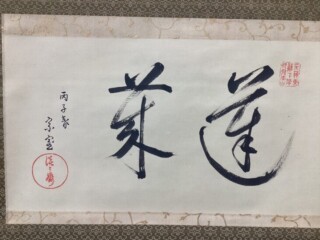 蓬莱
丙子春
宗室